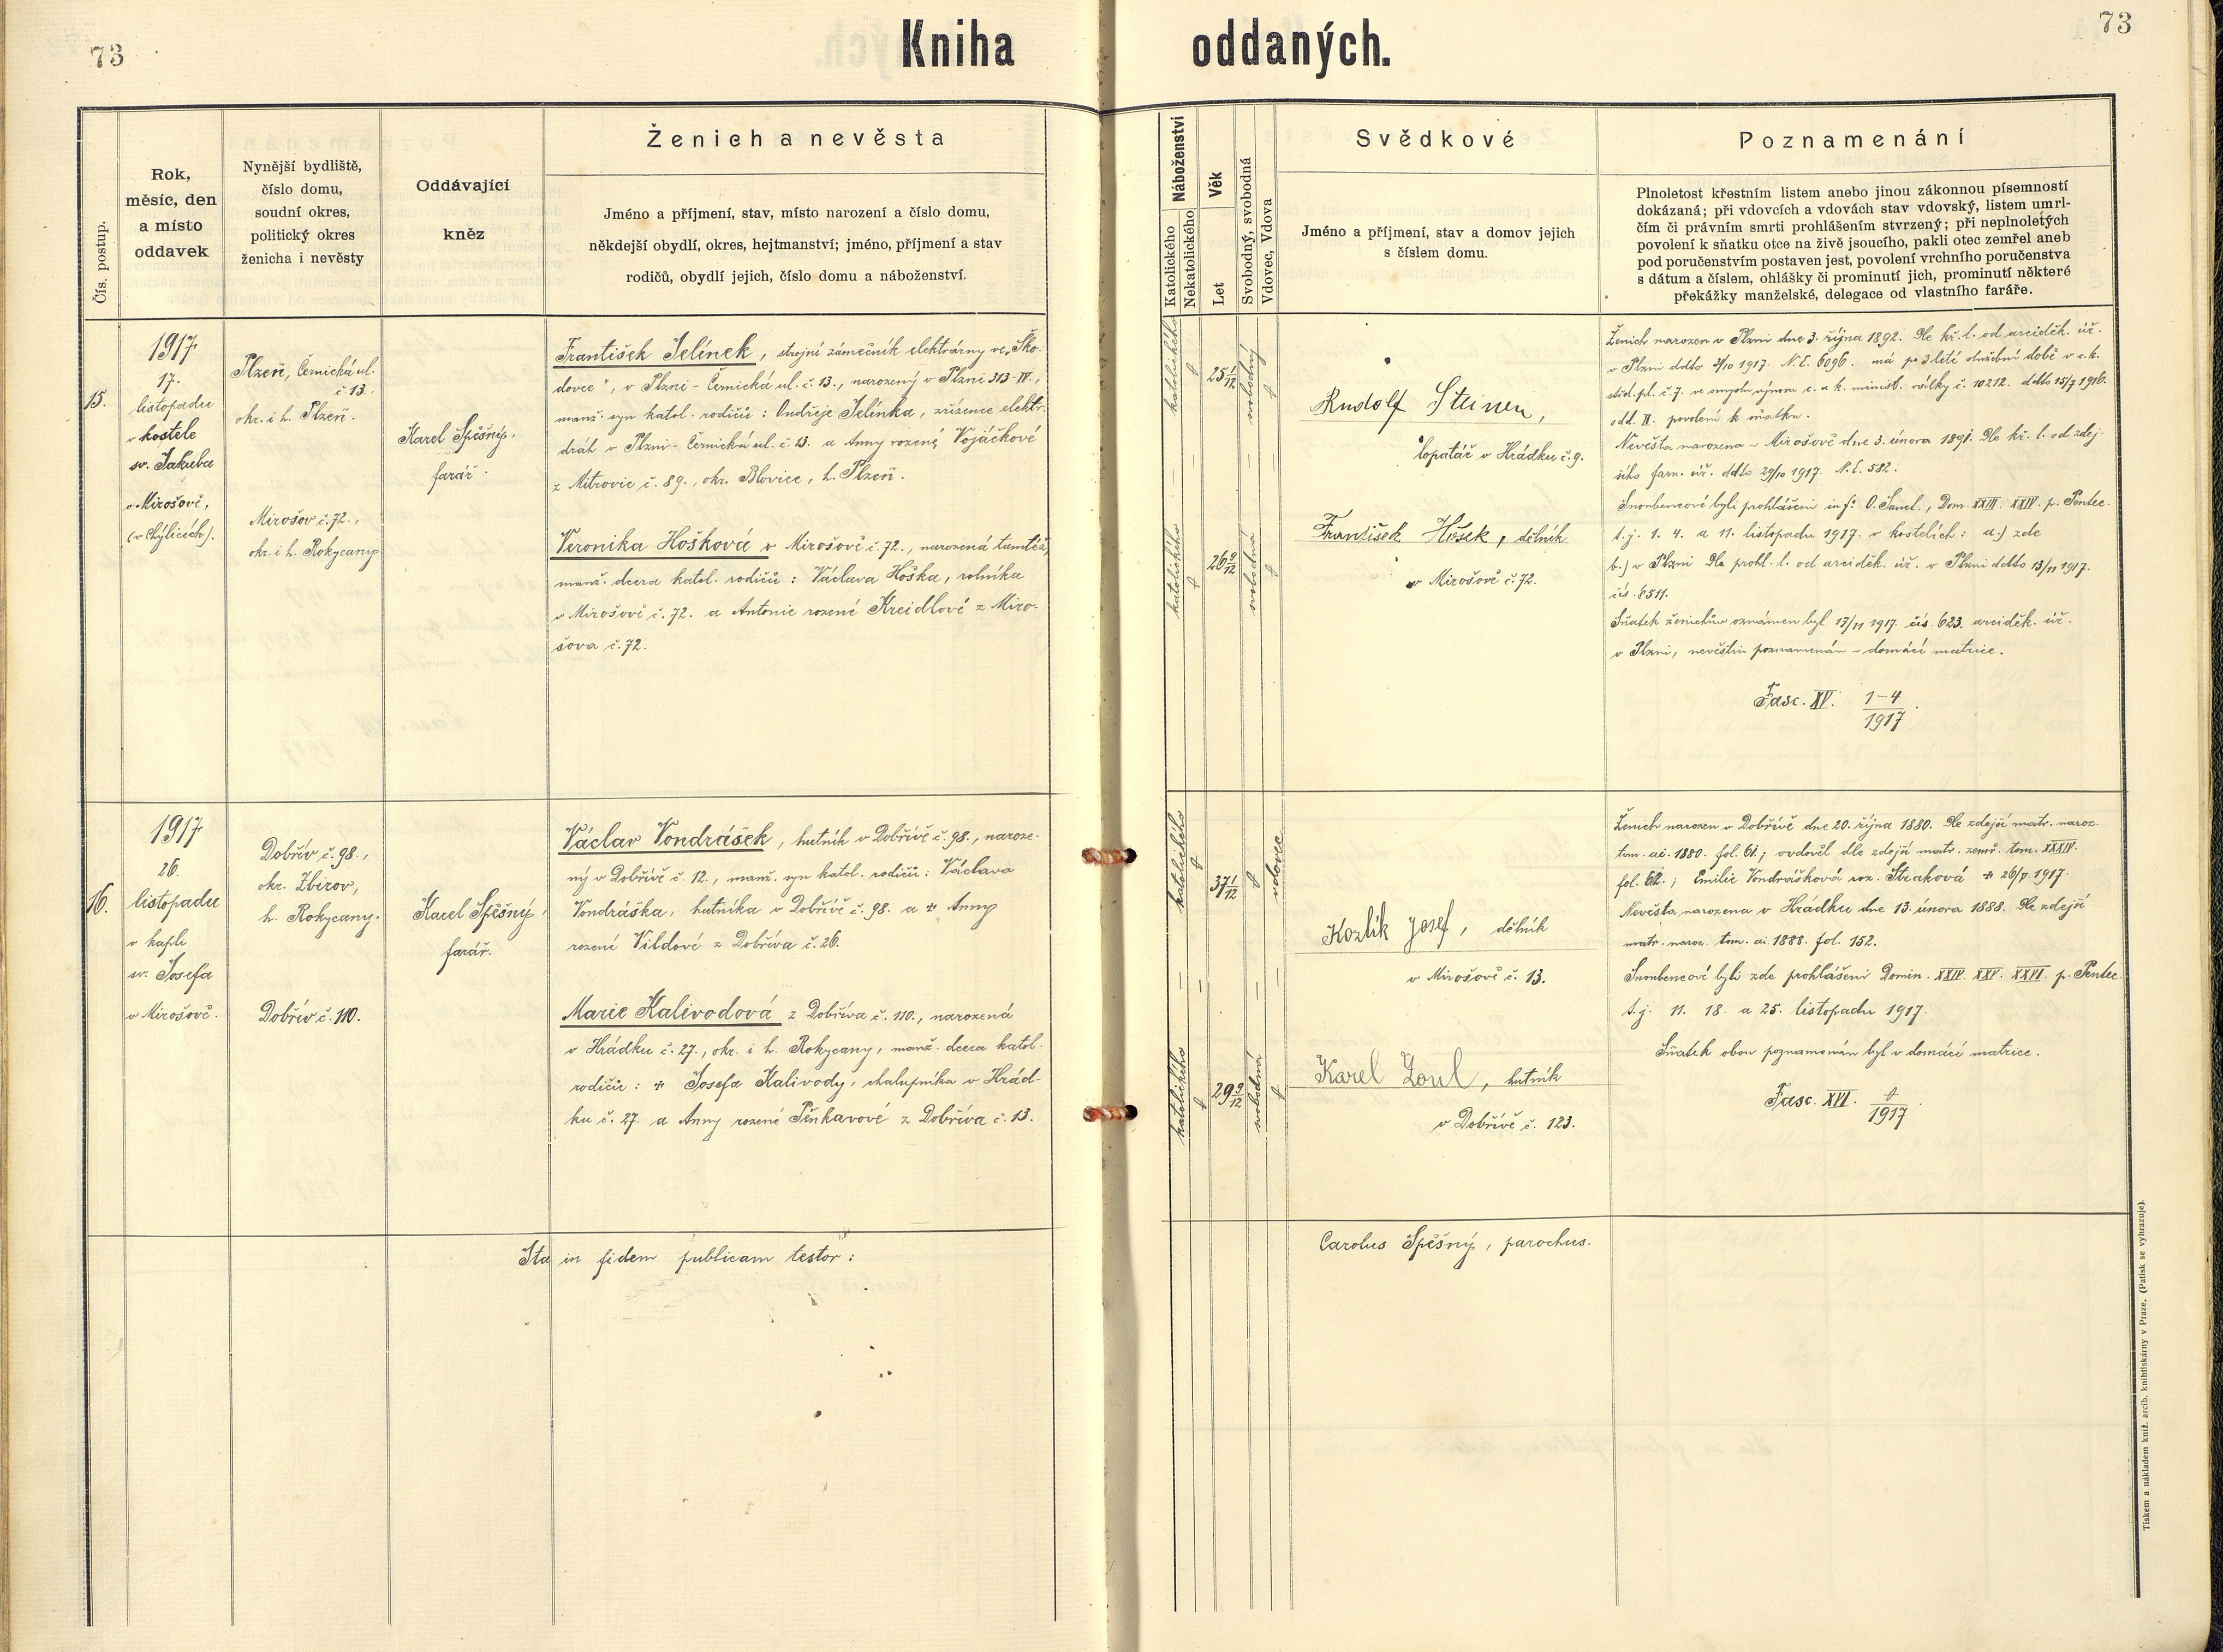 73
Kniha oddaných.
73
Čís. postup.
Rok,
měsíc, den
a místo
oddavek
Nynější bydliště,
číslo domu,
soudní okres,
politický okres
ženicha i nevěsty
Oddávající
kněz
Ženich a nevěsta
Jméno a příjmení, stav, místo narození a číslo domu,
někdejší obydlí, okres, hejtmanství; jméno, příjmení a stav
rodičů, obydlí jejich, číslo domu a náboženství.
Náboženství
Katolického
Nekatolického
Věk
Let
Svobodný, svobodná
Vdovec, Vdova
Svědkové
Jméno a příjmení, stav a domov jejich
s číslem domu.
Poznamenání
Plnoletost křestním listem anebo jinou zákonnou písemností
dokázaná; při vdovcích a vdovách stav vdovský, listem umrl-
čím či právním smrti prohlášením stvrzený; při neplnoletých
povolení k sňatku otce na živě jsoucího, pakli otec zemřel aneb
pod poručenstvím postaven jest, povolení vrchního poručenstva
s dátum a číslem, ohlášky či prominutí jich, prominutí některé
překážky manželské, delegace od vlastního faráře.
15.
1917
17.
listopadu
v kostele
sv. Jakuba
v Mirošově,
(v Chýlicích).
Plzeň, Černická ul.
č 13.
okr. i h. Plzeň.
Mirošov č. 72.,
okr. i h. Rokycany
Karel Spěšný,
farář.
František Jelínek, strojní zámečník elektrárny ve „Ško-
dovce", v Plzni - Černická ul. č. 13., narozený v Plzni 313-IV.,
manž. syn katol. rodičů: Ondřeje Jelínka, zřízence elektr.
dráh v Plzni - Černická ul. č. 13. a Anny rozené Vojáčkové
z Mitrovic č. 89., okr. Blovice, h. Plzeň.
Veronika Hošková v Mirošově č. 72., narozená tamtéž,
manž. dcera katol. rodičů: Václava Hoška, rolníka
v Mirošově č. 72. a Antonie rozené Kreidlové z Miro-
šova č. 72.
katolického
25 1/12
svobodný
katolického
26 9/12
svobodná
Rudolf Steiner,
lopatář v Hrádku č. 9.
František Hošek, dělník
v Mirošově č. 72.
Ženich narozen v Plzni dne 3. října 1892. Dle kř. l. od arciděk. úř.
v Plzni ddto 31/10 1917. N. E. 6096. má po 3 letí služební době v c. k.
pl. č. 7. ve smyslu výnosu c. a k. minist. války č. 10212. ddto 15/7 1916.
odd. II. povolení k sňatku.
Nevěsta narozena v Mirošově dne 3. února 1891. Dle kř. l. od zdej-
šího farn. úř. ddto 29/10 1917. N. E. 582.
Snoubencové byli prohlášeni in f: O. Sanct., Dom. XXIII. XXIV. p. Pentec.
t. j. 1. 4. a 11. listopadu 1917. v kostelích: a.) zde
b.) v Plzni Dle prohl. l. od arciděk. úř. v Plzni ddto 13/11 1917.
čís. 8511.
Sňatek ženichův oznámen byl 17/11 1917. čís. 623. arciděk. úř.
v Plzni, nevěstin poznamenán v domácí matrice.
Fasc. XV. 1-4/1917.
16.
1917
26.
listopadu
v kapli
sv. Josefa
v Mirošově.
Dobřív č. 98.,
okr. Zbirov,
h. Rokycany.
Dobřív č. 110.
Karel Spěšný,
farář.
Václav Vondrášek, hutník v Dobřívě č. 98., naroze-
ný v Dobřívě č. 12., manž. syn katol. rodičů: Václava
Vondráška, hutníka v Dobřívě č. 98. a + Anny
rozené Vildové z Dobříva č. 26.
Marie Kalivodová z Dobříva č. 110., narozená
v Hrádku č. 27., okr. i h. Rokycany, manž. dcera katol.
rodičů: + Josefa Kalivody, chalupníka v Hrád-
ku č. 27. a Anny rozené Pěnkavové z Dobříva č. 13.
katolického
37 1/12
vdovec
katolického
29 9/12
svobodná
Kozlík Josef, dělník
v Mirošově č. 13.
Karel Zoul, hutník
v Dobřívě č. 123.
Ženich narozen v Dobřívě dne 20. října 1880. Dle zdejší matr. naroz.
tom. ai. 1880. fol. 61.; ovdověl dle zdejší matr. zemř. tom. XXXIV.
fol. 62.; Emilie Vondrášková roz. Straková + 26/V 1917.
Nevěsta narozena v Hrádku dne 13. února 1888. Dle zdejší
matr. naroz. tom. ai. 1888. fol. 152.
Snoubencové byli zde prohlášeni Domin. XXIV. XXV. XXVI. p. Pentec.
t. j. 11. 18. a 25. listopadu 1917.
Sňatek obou poznamenán byl v domácí matrice.
Fasc. XVI. /1917.
Ita in fidem publicam testor:
Carolus Spěšný, parochus.
Tiskem a nákladem kníž. arcib. knihtiskárny v Praze. (Patisk se vyhrazuje).